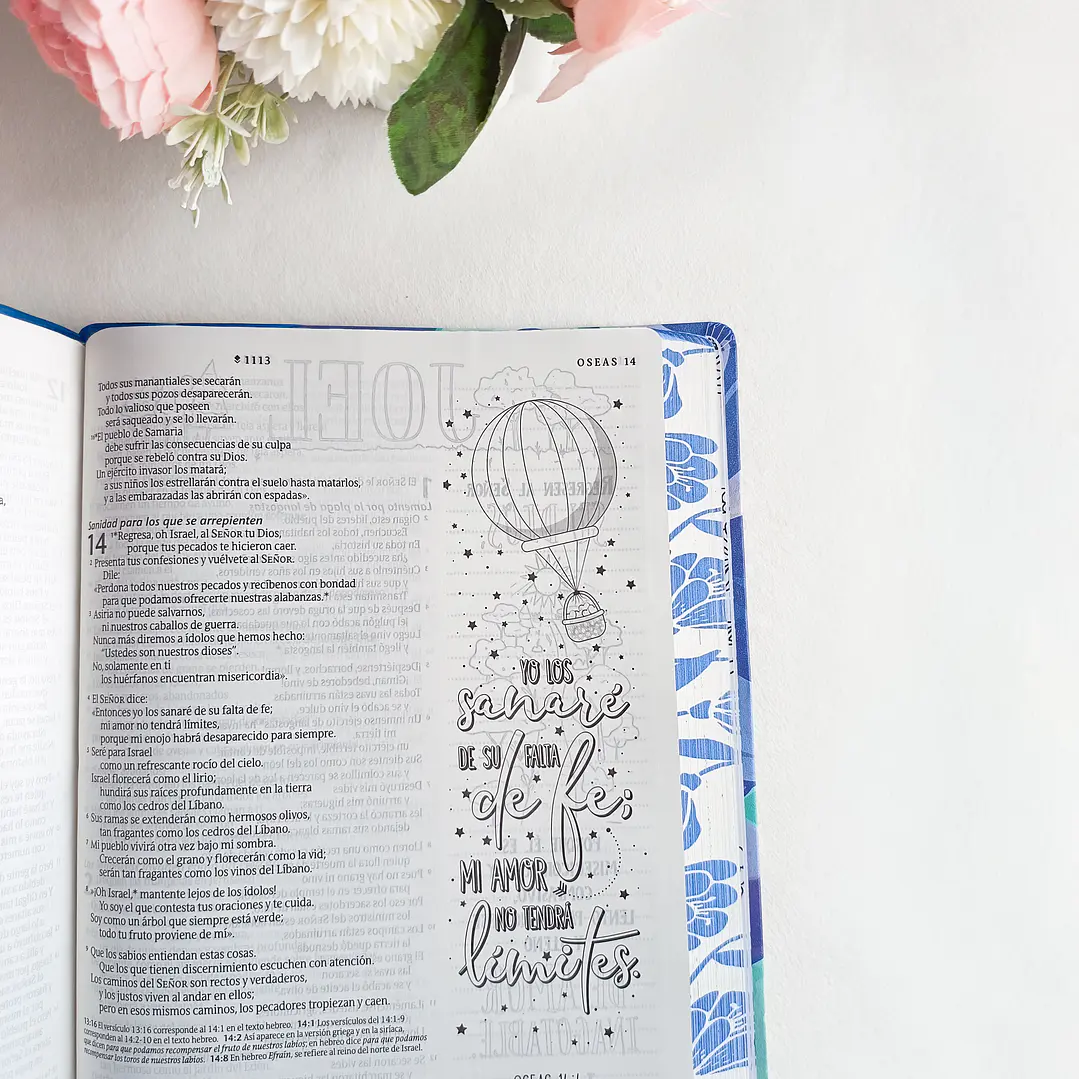 1113
OSEAS 14
Todos sus manantiales se secarán
y todos sus pozos desaparecerán.
Todo lo valioso que poseen
será saqueado y se lo llevarán.
16*El pueblo de Samaria
debe sufrir las consecuencias de su culpa
porque se rebeló contra su Dios.
Un ejército invasor los matará;
a sus niños los estrellarán contra el suelo hasta matarlos,
y a las embarazadas las abrirán con espadas».
Sanidad para los que se arrepienten
14 1*Regresa, oh Israel, al SEÑOR tu Dios,
porque tus pecados te hicieron caer.
2 Presenta tus confesiones y vuélvete al SEÑOR.
Dile:
«Perdona todos nuestros pecados y recíbenos con bondad
para que podamos ofrecerte nuestras alabanzas.*
3 Asiria no puede salvarnos,
ni nuestros caballos de guerra.
Nunca más diremos a ídolos que hemos hecho:
“Ustedes son nuestros dioses”.
No, solamente en ti
los huérfanos encuentran misericordia».
4 El SEÑOR dice:
«Entonces yo los sanaré de su falta de fe;
mi amor no tendrá límites,
porque mi enojo habrá desaparecido para siempre.
5 Seré para Israel
como un refrescante rocío del cielo.
Israel florecerá como el lirio;
hundirá sus raíces profundamente en la tierra
como los cedros del Líbano.
6 Sus ramas se extenderán como hermosos olivos,
tan fragantes como los cedros del Líbano.
7 Mi pueblo vivirá otra vez bajo mi sombra.
Crecerán como el grano y florecerán como la vid;
serán tan fragantes como los vinos del Líbano.
8 »¡Oh Israel,* mantente lejos de los ídolos!
Yo soy el que contesta tus oraciones y te cuida.
Soy como un árbol que siempre está verde;
todo tu fruto proviene de mí».
9 Que los sabios entiendan estas cosas.
Que los que tienen discernimiento escuchen con atención.
Los caminos del SEÑOR son rectos y verdaderos,
y los justos viven al andar en ellos;
pero en esos mismos caminos, los pecadores tropiezan y caen.
13:16 El versículo 13:16 corresponde al 14:1 en el texto hebreo. 14:1 Los versículos del 14:1-9
corresponden al 14:2-10 en el texto hebreo. 14:2 Así aparece en la versión griega y en la siríaca,
que dicen para que podamos recompensar el fruto de nuestros labios; en hebreo dice para que podamos
recompensar los toros de nuestros labios. 14:8 En hebreo Efraín, se refiere al reino del norte de Israel.
YO LOS
sanaré
DE SU FALTA
de fe;
MI AMOR
NO TENDRÁ
límites.